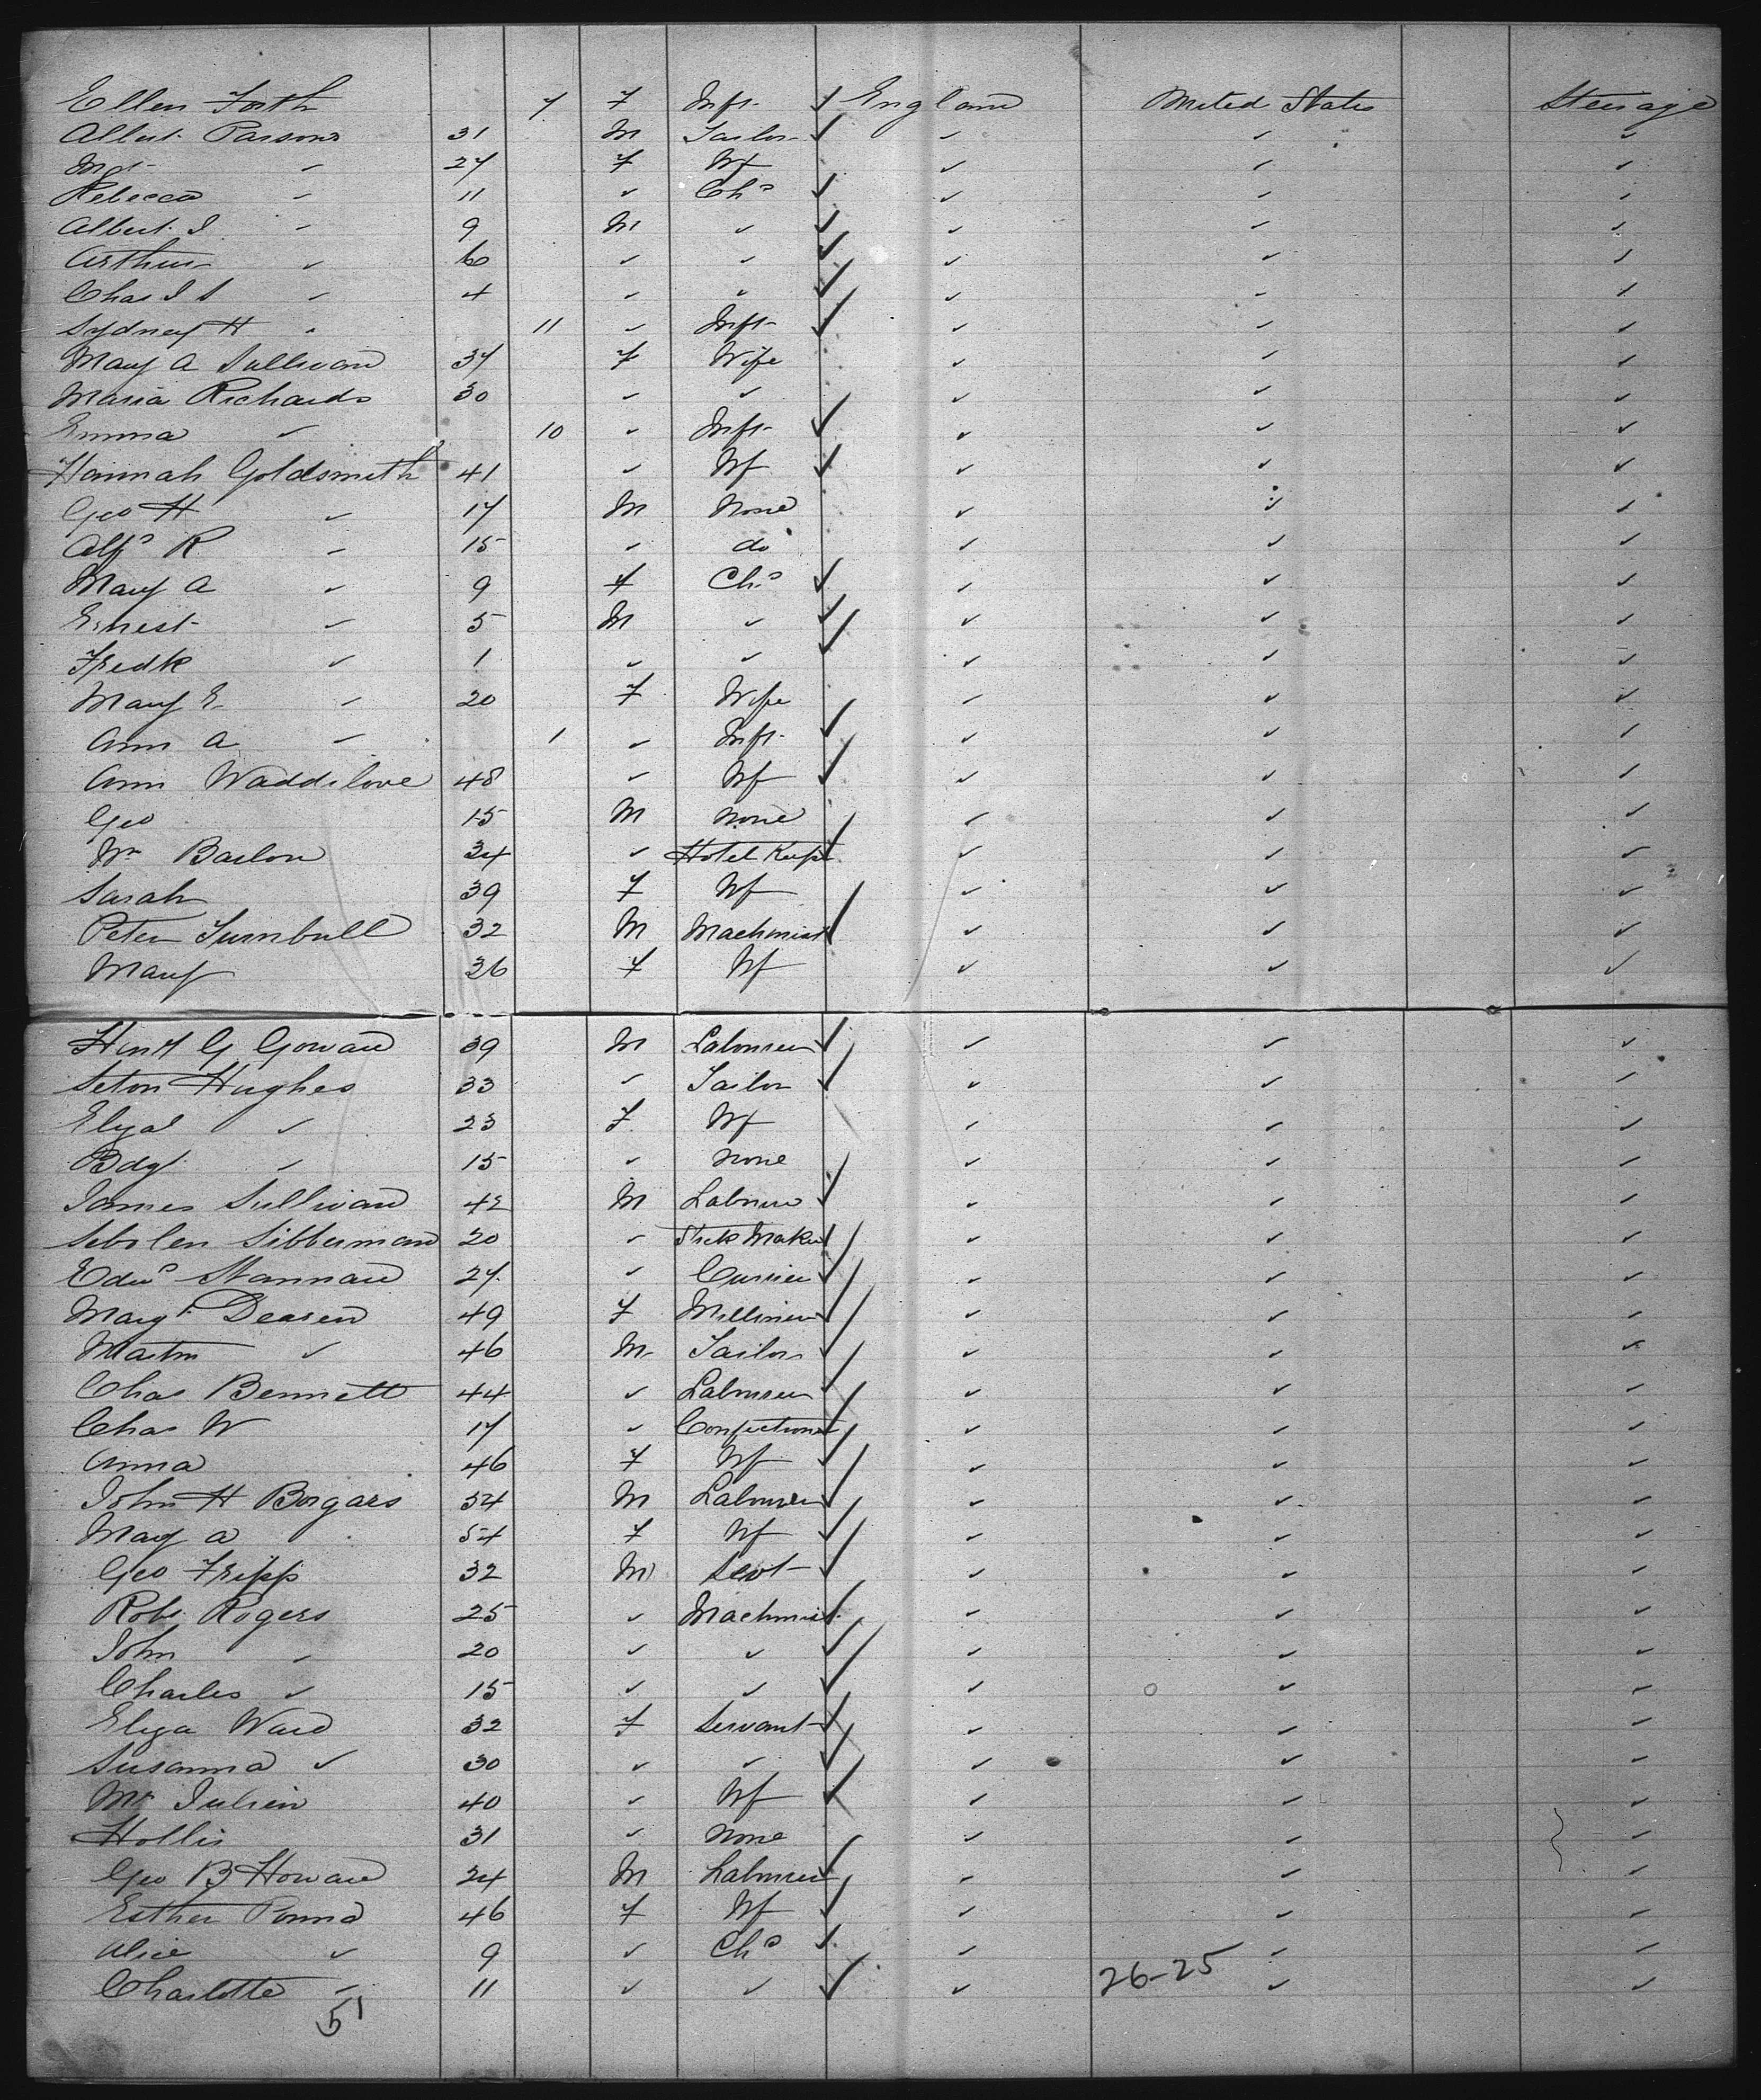 Ellen Forth 7 F Inft England United States Steerage
Albert Parsons 31 M Tailor ✓ ✓ ✓
Mgt ✓ 27 F Wf ✓ ✓ ✓
Rebecca ✓ 11 ✓ Chd ✓ ✓ ✓
Albert J ✓ 9 M ✓ ✓ ✓ ✓
Arthur ✓ 6 ✓ ✓ ✓ ✓ ✓
Chas J S ✓ 4 ✓ ✓ ✓ ✓ ✓
Sydney H ✓ 11 ✓ Inft ✓ ✓ ✓
Mary A Sullivan 37 F Wife ✓ ✓ ✓
Maria Richards 30 ✓ ✓ ✓ ✓ ✓
Emma ✓ 10 ✓ Inft ✓ ✓ ✓
Hannah Goldsmith 41 ✓ Wf ✓ ✓ ✓
Geo H ✓ 17 M None ✓ ✓ ✓
Alfd R ✓ 15 ✓ do ✓ ✓ ✓
Mary A ✓ 9 F Chd ✓ ✓ ✓
Ernest ✓ 5 M ✓ ✓ ✓ ✓
Fredk ✓ 1 ✓ ✓ ✓ ✓ ✓
Mary E ✓ 20 F Wife ✓ ✓ ✓
Ann A ✓ 1 ✓ Inft ✓ ✓ ✓
Ann Waddilove 48 ✓ Wf ✓ ✓ ✓
Geo 15 M None ✓ ✓ ✓
Wm Barlow 34 ✓ Hotel Keepr ✓ ✓ ✓
Sarah 39 F Wf ✓ ✓ ✓
Peter Turnbull 32 M Machinist ✓ ✓ ✓
Mary 36 F Wf ✓ ✓ ✓
G Gowan 39 M Labourer ✓ ✓ ✓
Seton Hughes 33 ✓ Tailor ✓ ✓ ✓
Elizat ✓ 23 F Wf ✓ ✓ ✓
Bdgt ✓ 15 ✓ None ✓ ✓ ✓
James Sullivan 42 M Labourer ✓ ✓ ✓
Sibberman 20 ✓ Stick Maker ✓ ✓ ✓
Edwd Stannard 27 ✓ Currier ✓ ✓ ✓
Margt Deasen 49 F Milliner ✓ ✓ ✓
Martin ✓ 46 M Tailor ✓ ✓ ✓
Chas Bennett 44 ✓ Labourer ✓ ✓ ✓
Chas W 17 ✓ Confectioner ✓ ✓ ✓
Anna 46 F Wf ✓ ✓ ✓
John H Bogars 54 M Labourer ✓ ✓ ✓
Mary A 54 F Wf ✓ ✓ ✓
Geo Fripp 32 M Servt ✓ ✓ ✓
Robt Rogers 25 ✓ Machinist ✓ ✓ ✓
John ✓ 20 ✓ ✓ ✓ ✓ ✓
Charles ✓ 15 ✓ ✓ ✓ ✓ ✓
Eliza Ward 32 F Servant ✓ ✓ ✓
Susanna ✓ 30 ✓ ✓ ✓ ✓ ✓
Mrs Julien 40 ✓ Wf ✓ ✓ ✓
Hollis 31 ✓ None ✓ ✓ ✓
Geo B Howard 24 M Labourer ✓ ✓ ✓
Esther Pound 46 F Wf ✓ ✓ ✓
Alice ✓ 9 ✓ Chd ✓ ✓ ✓
Charlotte ✓ 11 ✓ ✓ ✓ ✓ ✓
51 26-25